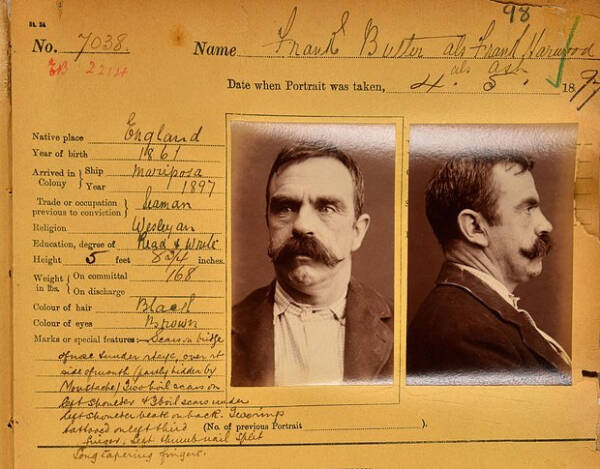 98
No. 7038. Name Frank Butler als Frank Harwood
als Ash
EB 2214
Date when Portrait was taken, 4. 5. 1897
Native place England
Year of birth 1861
Arrived in Colony } Ship Mariposa
Year 1897
Trade or occupation previous to conviction } Seaman
Religion Wesleyan
Education, degree of Read & Write
Height 5 feet 8 3/4 inches.
Weight in lbs. } On committal 168
On discharge
Colour of hair Black
Colour of eyes Brown
Marks or special features:— Scars on bridge
of nose & under rt eye, over rt
side of mouth (partly hidden by
Moustache) Two boil scars on
left shoulder & 3 boil scars under
left shoulder back on back.
tattooed on left third (No. of previous Portrait ).
finger, left thumb nail split
Long tapering fingers.